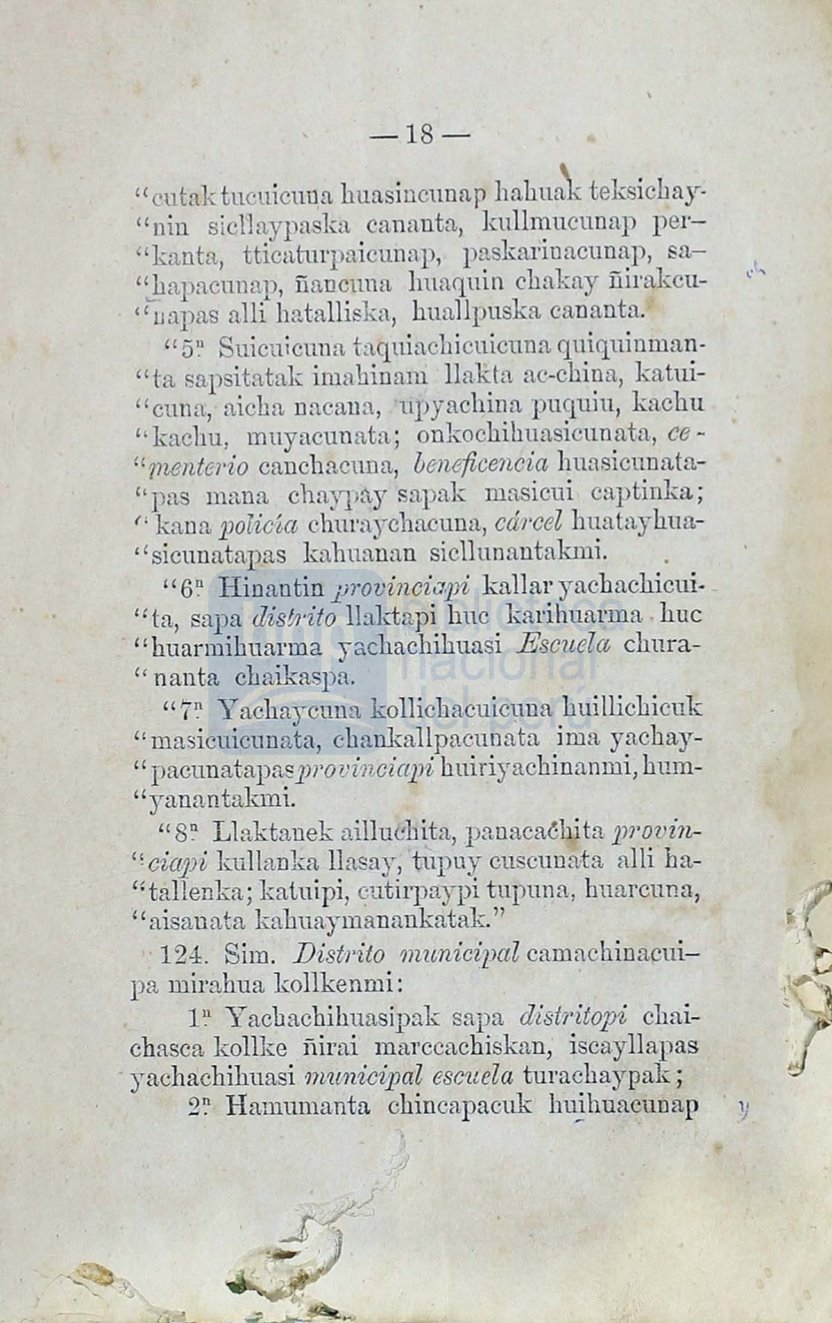 — 18 —
“cutak tucuicuna huasincunap hahuak teksichay-
“nin sicllaypaska cananta, kullmucunap per-
“kanta, tticaturpaicunap, paskarinacunap, sa-
“hapacunap, ñancuna huaquin chakay ñirakcu-
“napas alli hatalliska, huallpuska cananta.
“5ⁿ Suicuicuna taquiachicuicuna quiquinman-
“ta sapsitatak imahinam llakta ac-china, katui-
“cuna, aicha nacana, upyachina puquiu, kachu
“kachu, muyacunata; onkochihuasicunata, ce-
“menterio canchacuna, beneficencia huasicunata-
“pas mana chaypay sapak masicui captinka;
“kana policía churaychacuna, cárcel huatayhua-
“sicunatapas kahuanan sicllunantakmi.
“6ⁿ Hinantin provinciapi kallar yachachicui-
“ta, sapa distrito llaktapi huc karihuarma huc
“huarmihuarma yachachihuasi Escuela chura-
“nanta chaikaspa.
“7ⁿ Yachaycuna kollichacuicuna huillichicuk
“masicuicunata, chankallpacunata ima yachay-
“pacunatapas provinciapi huiriyachinanmi, hum-
“yanantakmi.
“8ⁿ Llaktanek ailluchita, panacachita provin-
“ciapi kullanka llasay, tupuy cuscunata alli ha-
“tallenka; katuipi, cutirpaypi tupuna, huarcuna,
“aisanata kahuaymanankatak.”
124. Sim. Distrito municipal camachinacui-
pa mirahua kollkenmi:
1ⁿ Yachachihuasipak sapa distritopi chai-
chasca kollke ñirai marccachiskan, iscayllapas
yachachihuasi municipal escuela turachaypak;
2ⁿ Hamumanta chincapacuk huihuacunap